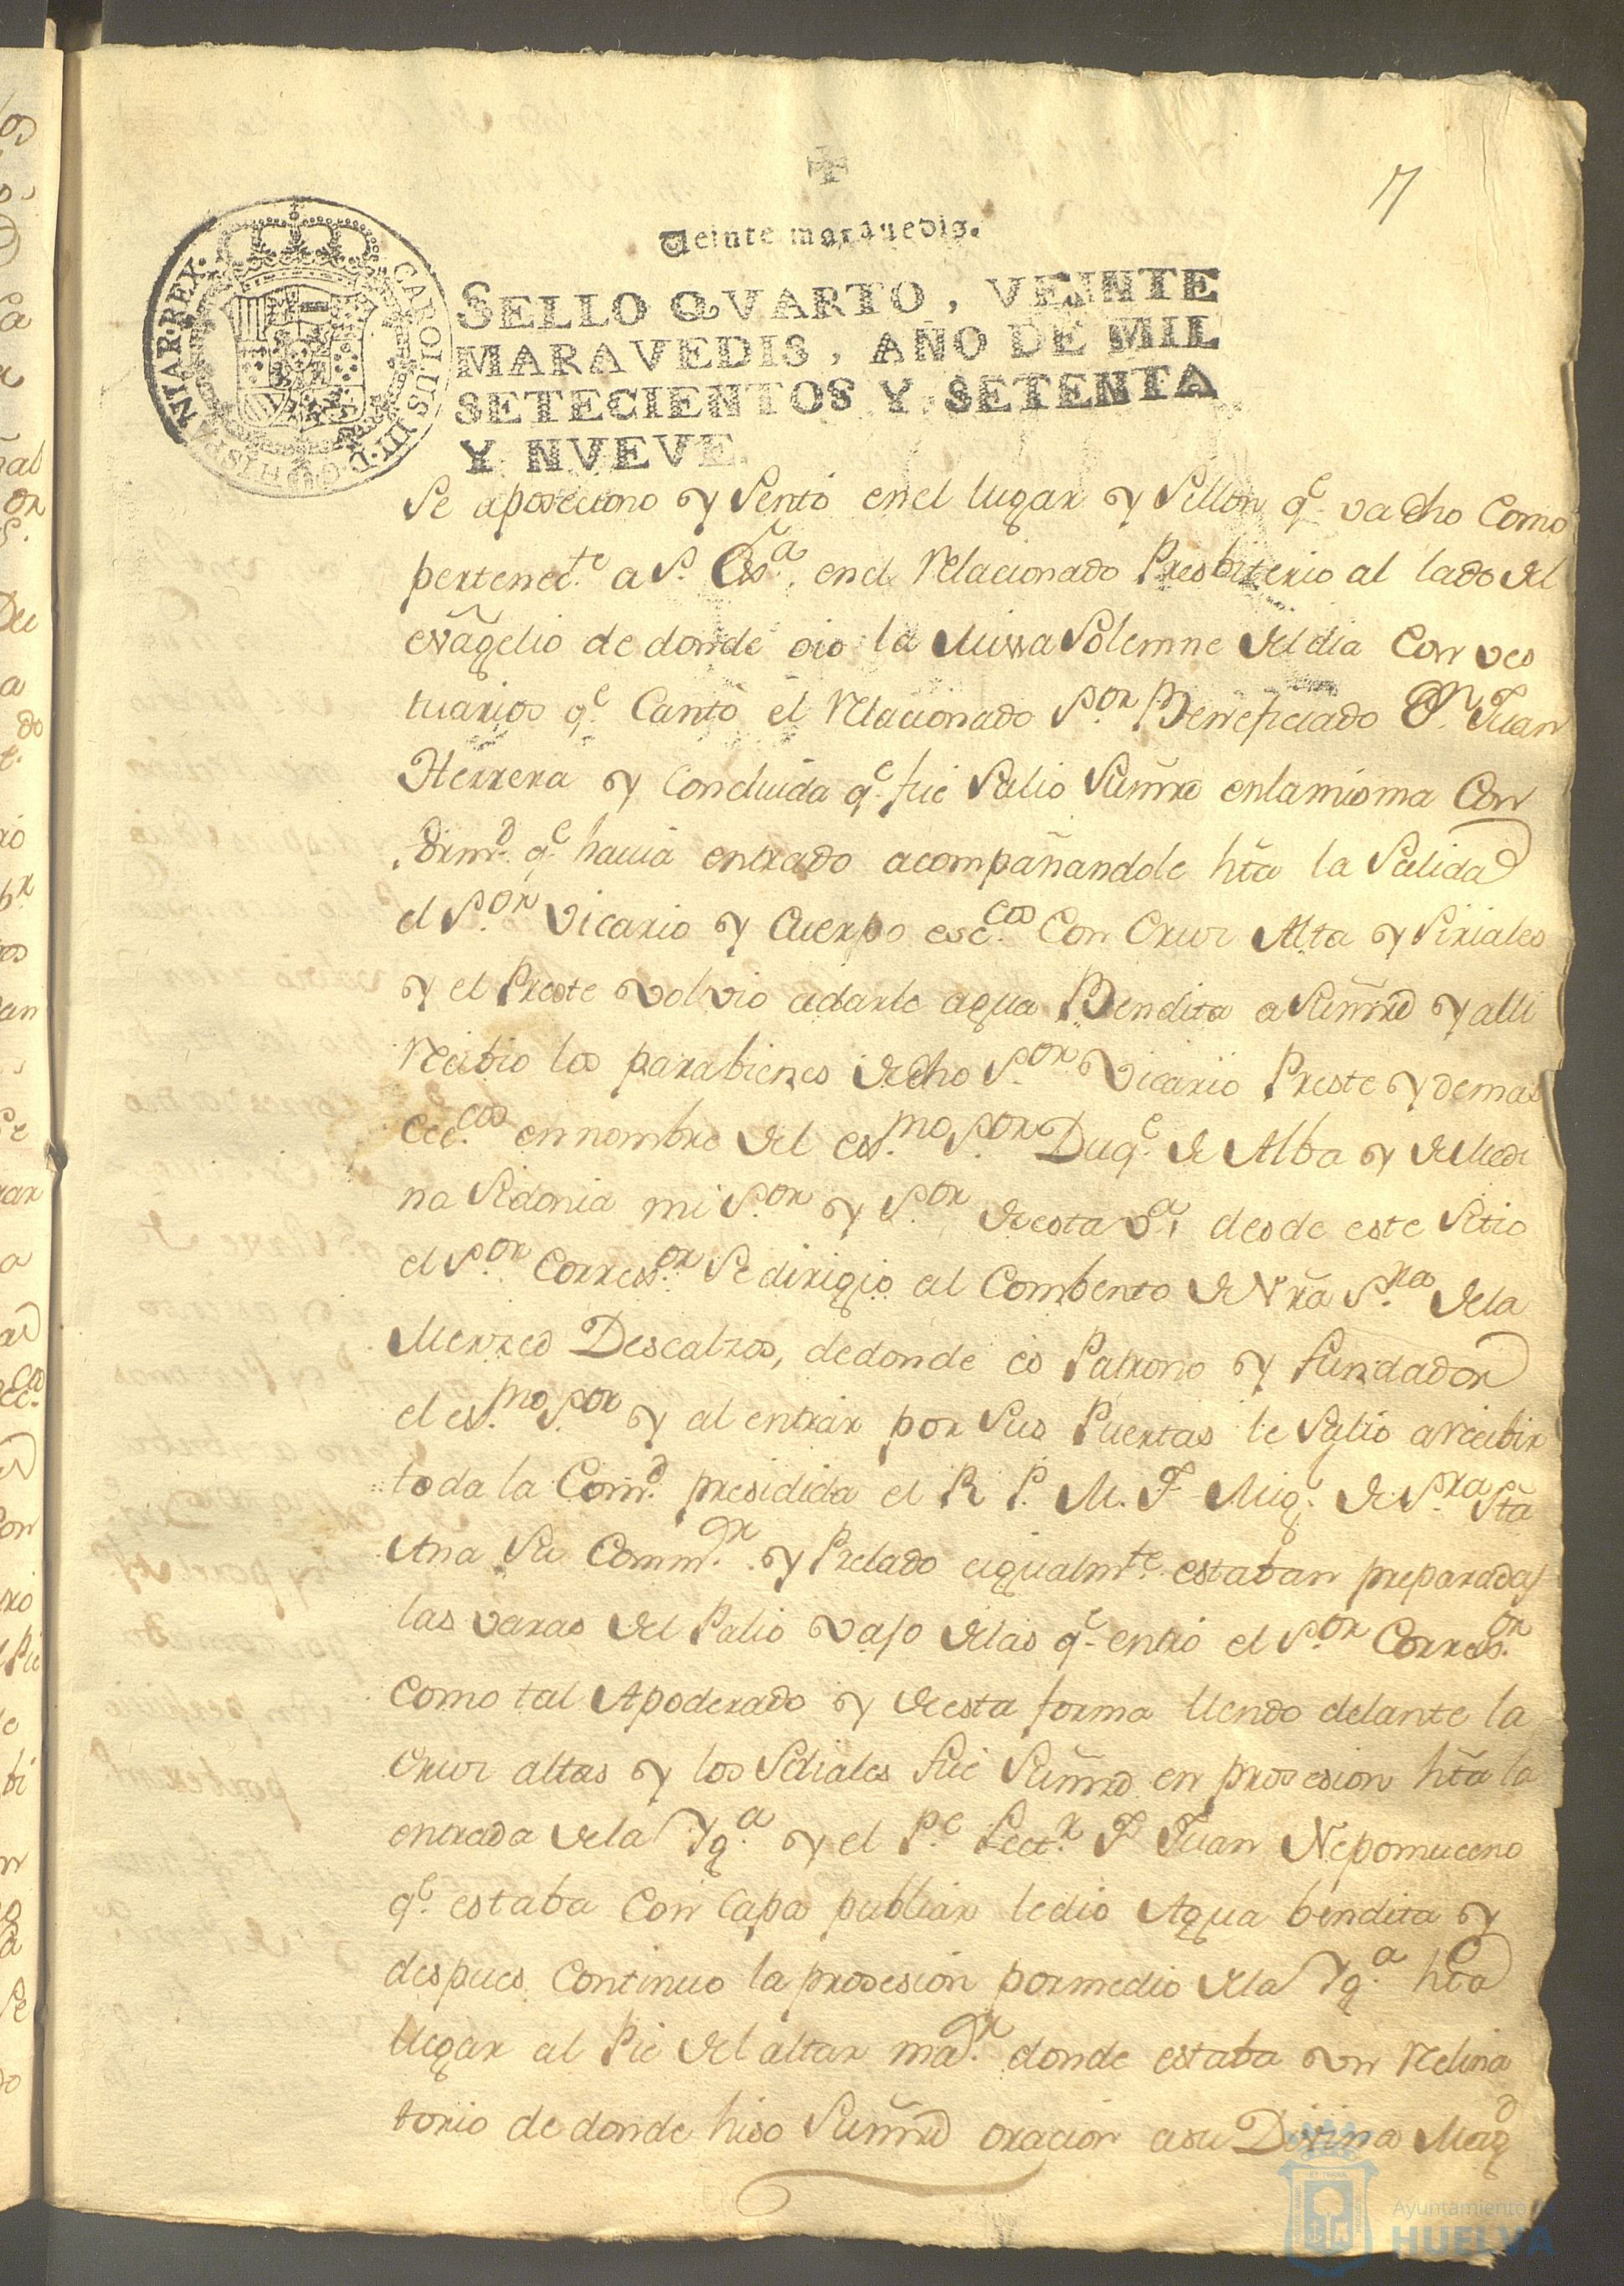 17
Veinte maravedis.
CAROLUS III D G HISPANIAR REX
SELLO QVARTO, VEINTE
MARAVEDIS, AÑO DE MIL
SETECIENTOS Y SETENTA
Y NVEVE.
Se aposeciono y Sento en el lugar y Sillon q.e va dho como
pertenec.te a S. Ex.a en el relacionado Presbiterio al lado del
evãgelio de donde oio la Missa Solemne del dia con ves
tuarios q.e Canto el relacionado S.or Beneficiado D.n Juan
Herrera y Concluida q.e fue Salio Su mrd en la misma Con
formd. q.e havia entrado acompañandole hta la Salida
el S.or Vicario y Cuerpo esc.cos Con Cruz Alta y Siriales
y el Preste volvio a darle agua Bendita a Su mrd y alli
recibio los parabienes de dho S.or Vicario Preste y demas
ecc.cos en nombre del es.mo S.or Duq.e de Alba y de Medi
na Sidonia mi S.or y S.or de esta v.a, desde este Sitio
el S.or Corres.or Se dirigio al Combento de Nrã S.ra de la
Merzed Descalzos, de donde es Patrono y fundador
el es.mo S.or y al entrar por Sus Puertas le Salio a recibir
toda la Com.d presidida el R P. M. F Mig.l de S.ra Stã
Ana Su Comm.or y Prelado e igualm.te estaban preparadas
las varas del Palio vajo de las q.e entró el S.or Corres.or
Como tal Apoderado y de esta forma llendo delante la
Cruz altas y los Seliales fue Su mrd en prosesion hta la
entrada de la Yg.a y el P.e Lect.r F Juan Nepomuceno
q.e estaba Con Capa publiar le dio Agua bendita y
despues Continuo la prosesion por medio de la Yg.a hta
llegar al Pie del altar ma.or donde estaba un reclina
torio de donde hiso Su mrd oracion a su Divina Magd
Ayuntamiento de
HUELVA